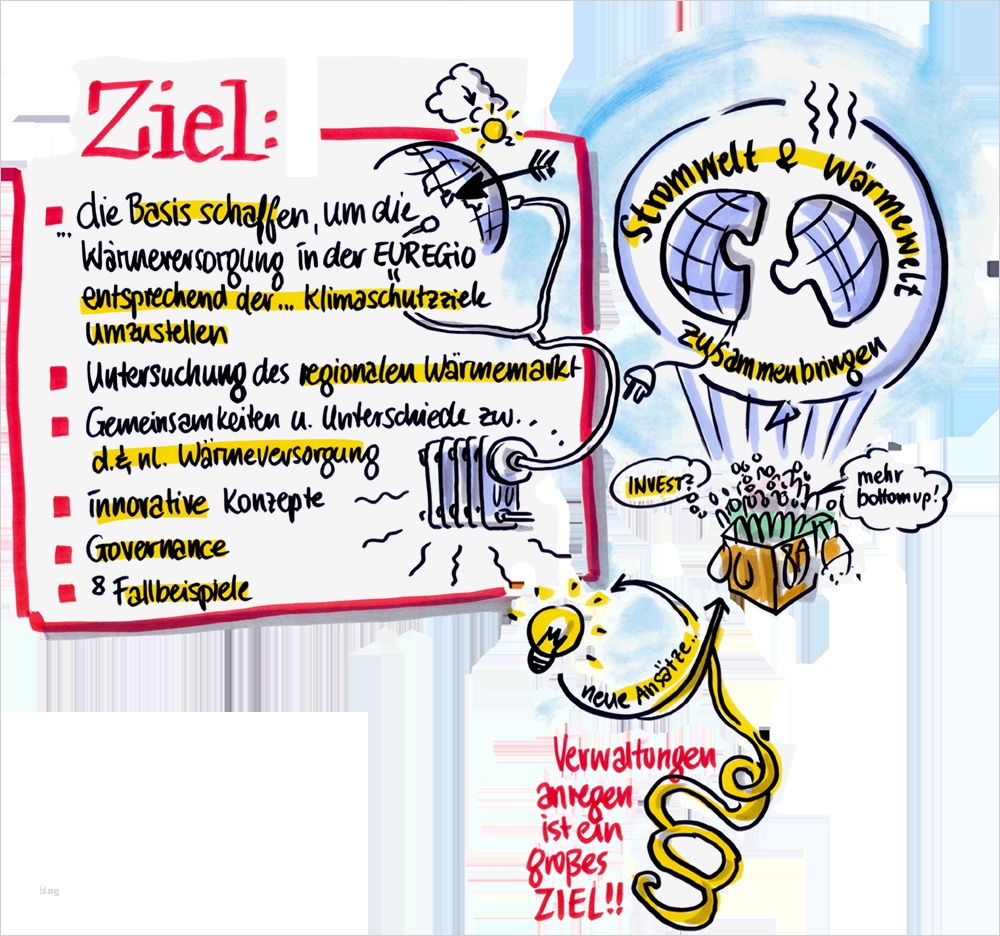 Ziel:
die Basis schaffen, um die
... Wärmeversorgung in der EUREGIO
entsprechend der... Klimaschutzziele
umzustellen
Untersuchung des regionalen Wärmemarkt
Gemeinsamkeiten u. Unterschiede zw...
d. & nl. Wärmeversorgung
innovative Konzepte
Governance
8 Fallbeispiele
Stromwelt & Wärmewelt
zusammenbringen
INVEST?
mehr
bottom up!
neue Ansätze..
Verwaltungen
anregen
ist ein
großes
ZIEL!!
blog